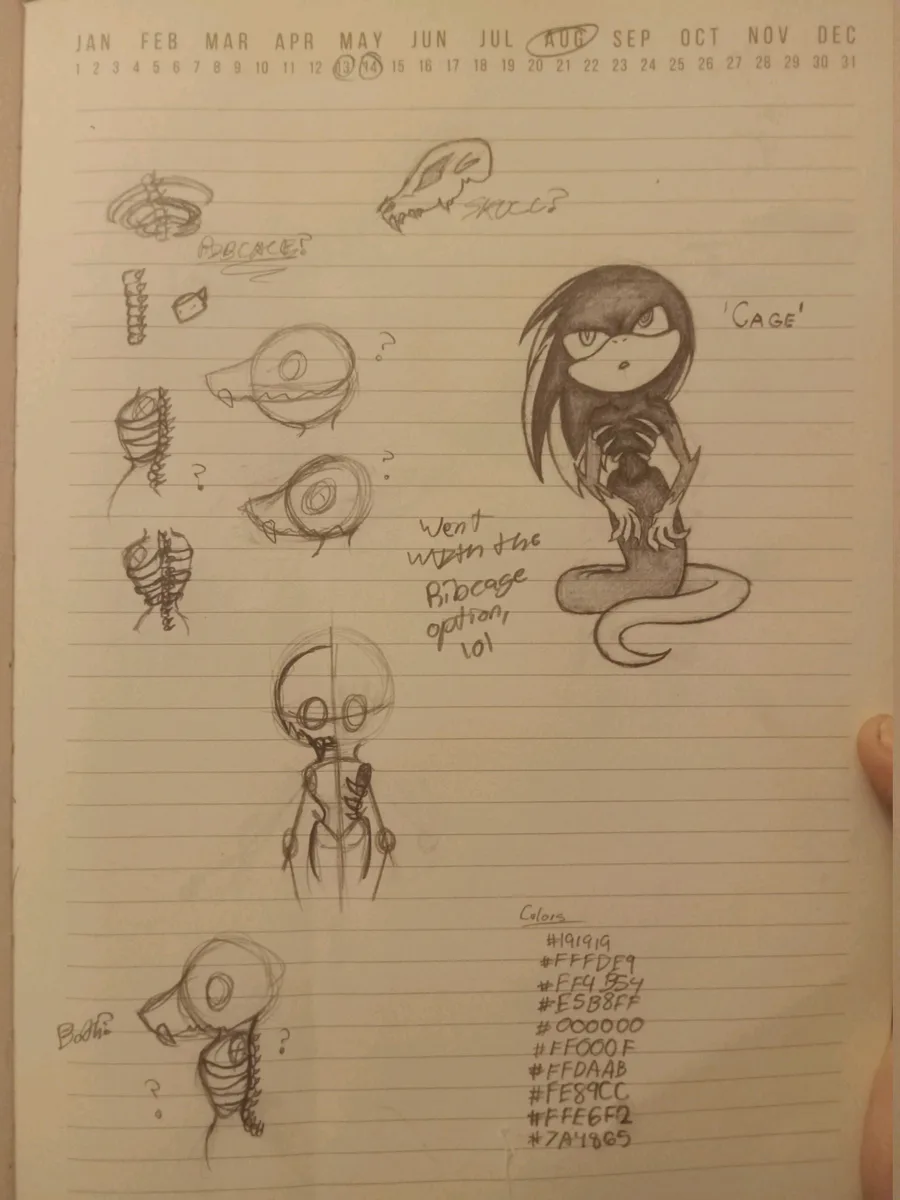 JAN FEB MAR APR MAY JUN JUL AUG SEP OCT NOV DEC
1 2 3 4 5 6 7 8 9 10 11 12 13 14 15 16 17 18 19 20 21 22 23 24 25 26 27 28 29 30 31
SKULL?
RIBCAGE?
'CAGE'
?
?
?
Went
With the
Ribcage
option,
lol
Colors
#191919
#FFFDE9
#FF4554
#E5B8FF
#000000
#FF000F
#FFDAAB
#FE89CC
#FFE6F2
#7A4865
Both?
?
?